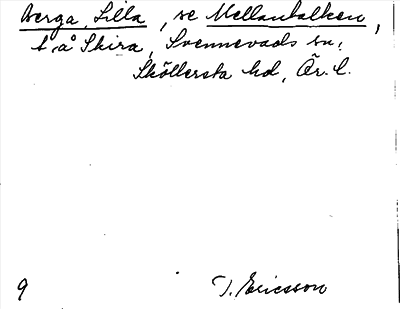 Berga, Lilla, se Mellanbalken,
t. å Skira, Svennevads sn,
Sköllersta hd, Ör. l.
9 T. Ericsson